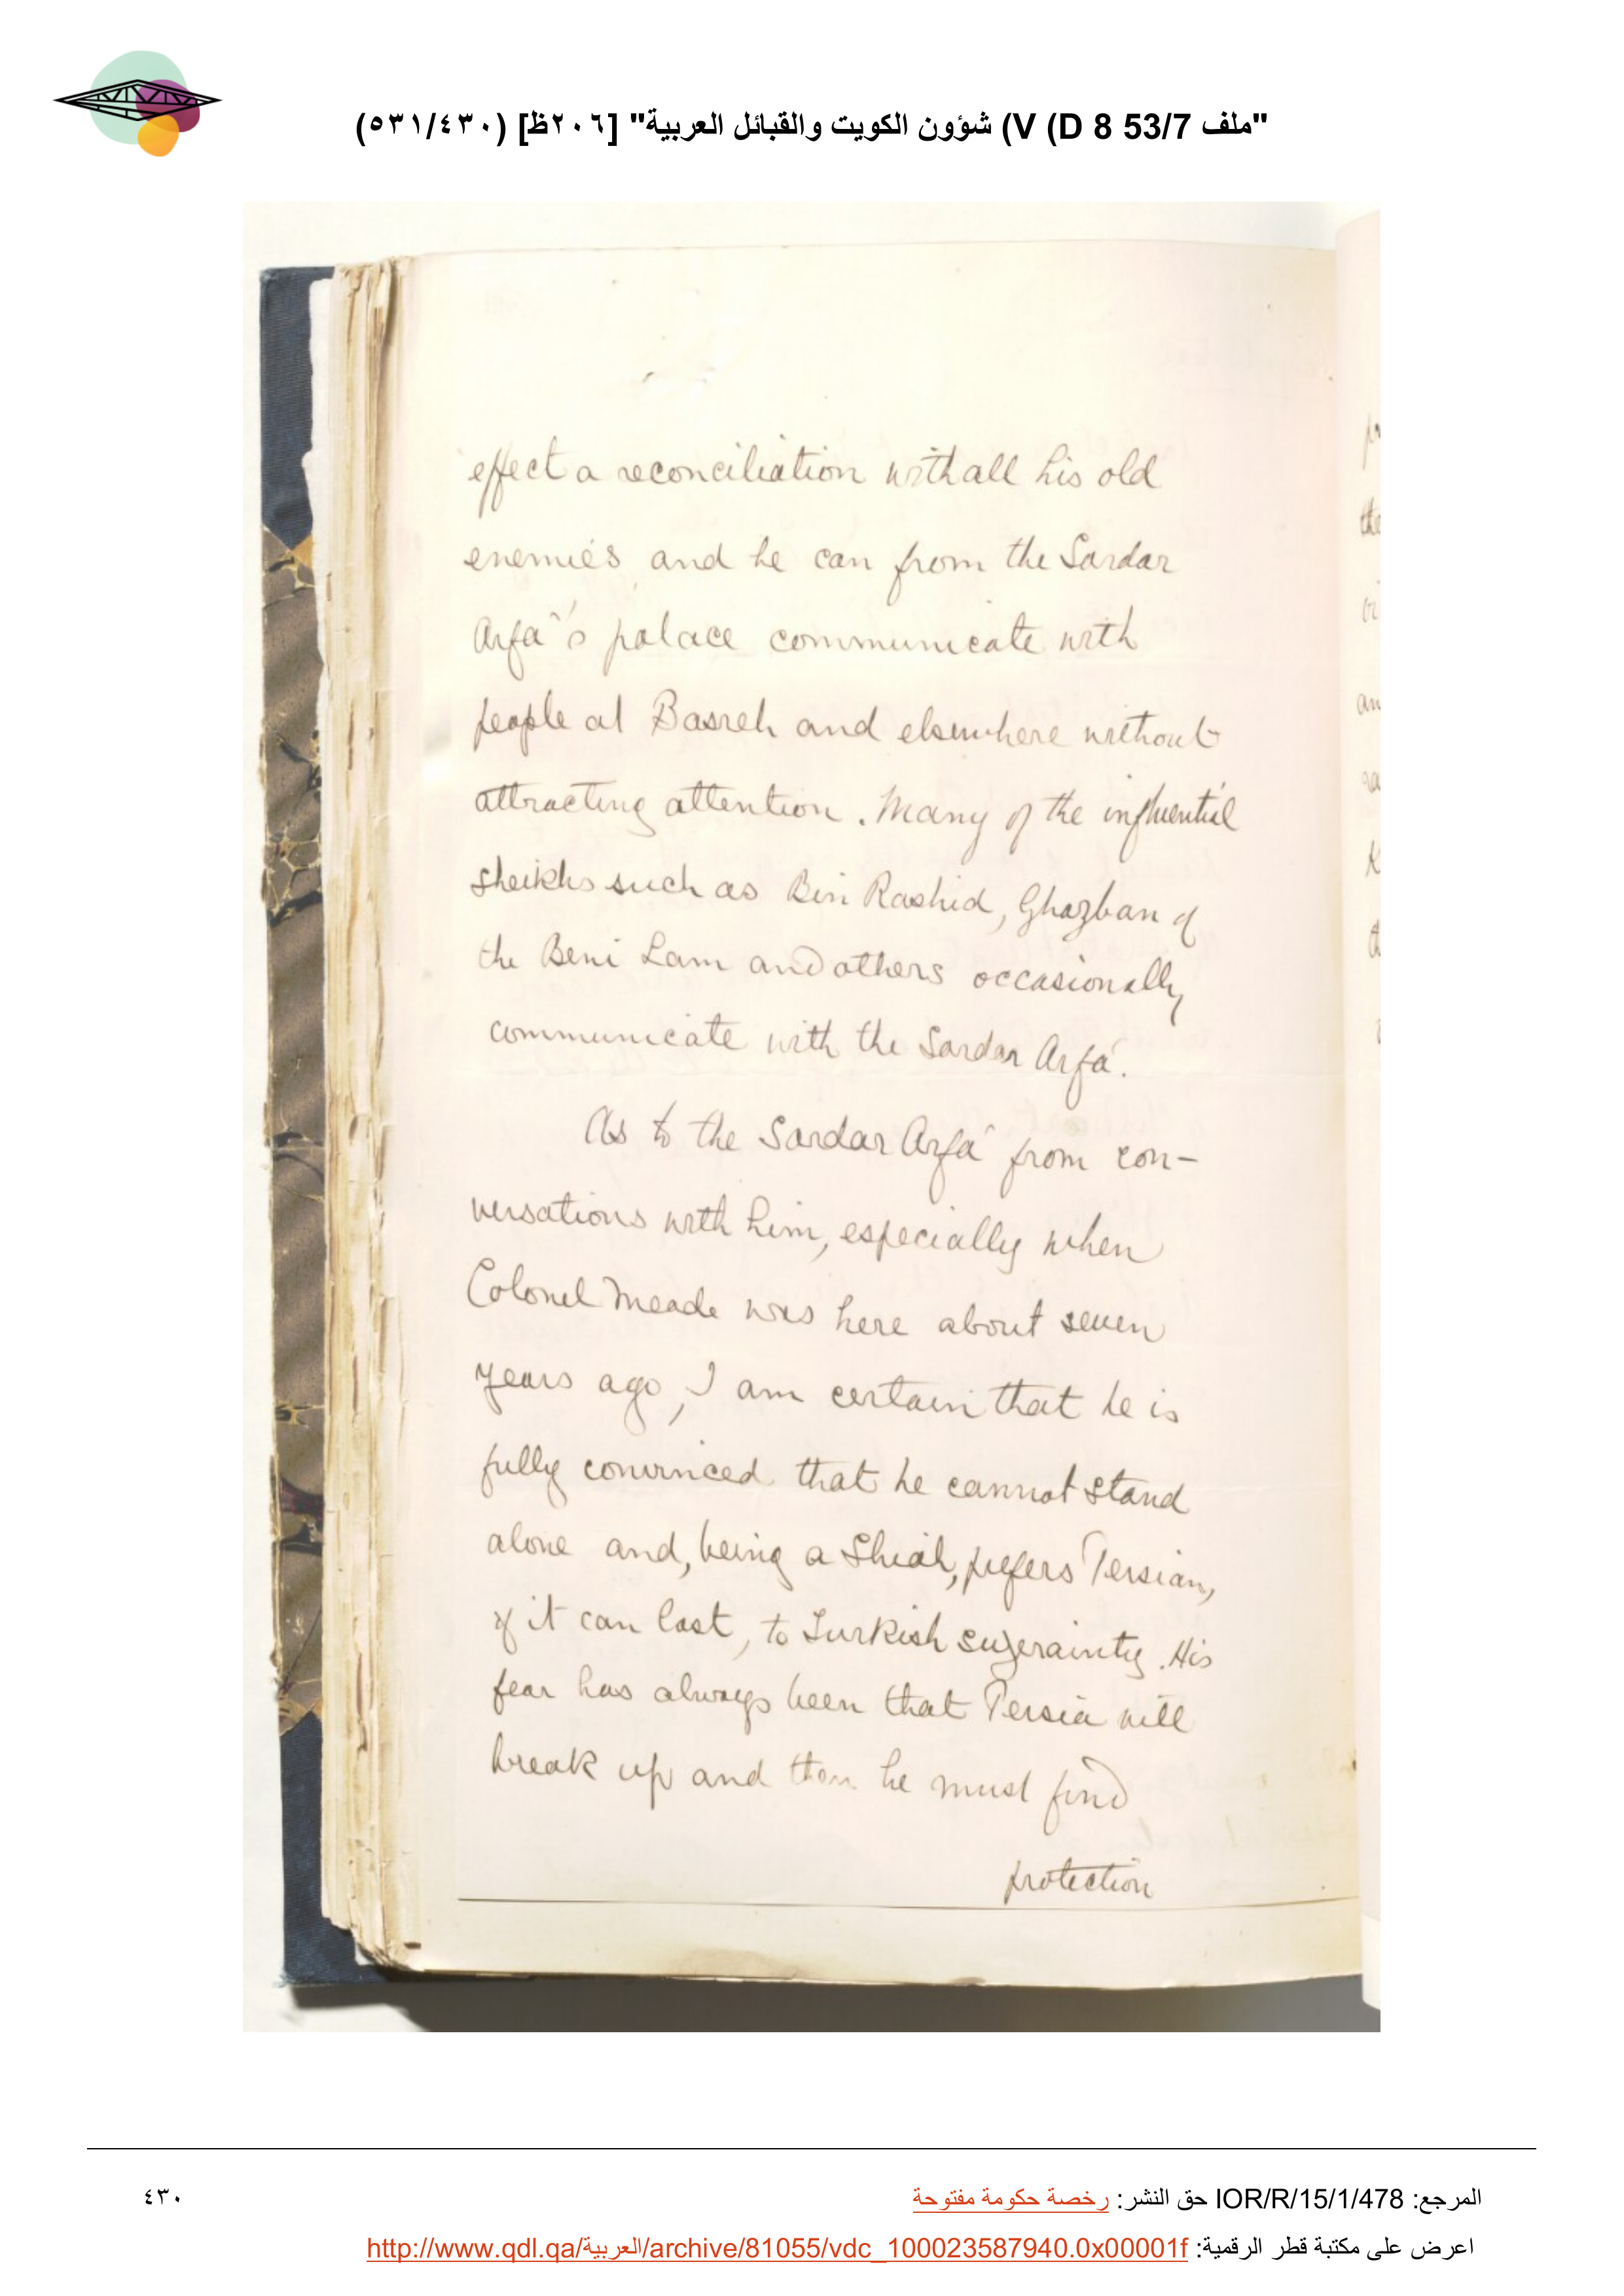 "ملف 53/7 D 8) V) شؤون الكويت والقبائل العربية" [٢٠٦ظ] (٥٣١/٤٣٠)
effect a reconciliation with all his old
enemies and he can from the Sardar
Arfa's palace communicate with
people at Basreh and elsewhere without
attracting attention. Many of the influential
Sheikhs such as Bin Rashid, Ghazban of
the Beni Lam and others occasionally
communicate with the Sardar Arfa'.
As to the Sardar Arfa' from con-
versations with him, especially when
Colonel Meade was here about seven
years ago, I am certain that he is
fully convinced that he cannot stand
alone and, being a Shiah, prefers Persian,
if it can last, to Turkish suzerainty. His
fear has always been that Persia will
break up and then he must find
protection
المرجع: IOR/R/15/1/478 حق النشر: رخصة حكومة مفتوحة
٤٣٠
اعرض على مكتبة قطر الرقمية: http://www.qdl.qa/العربية/archive/81055/vdc_100023587940.0x00001f